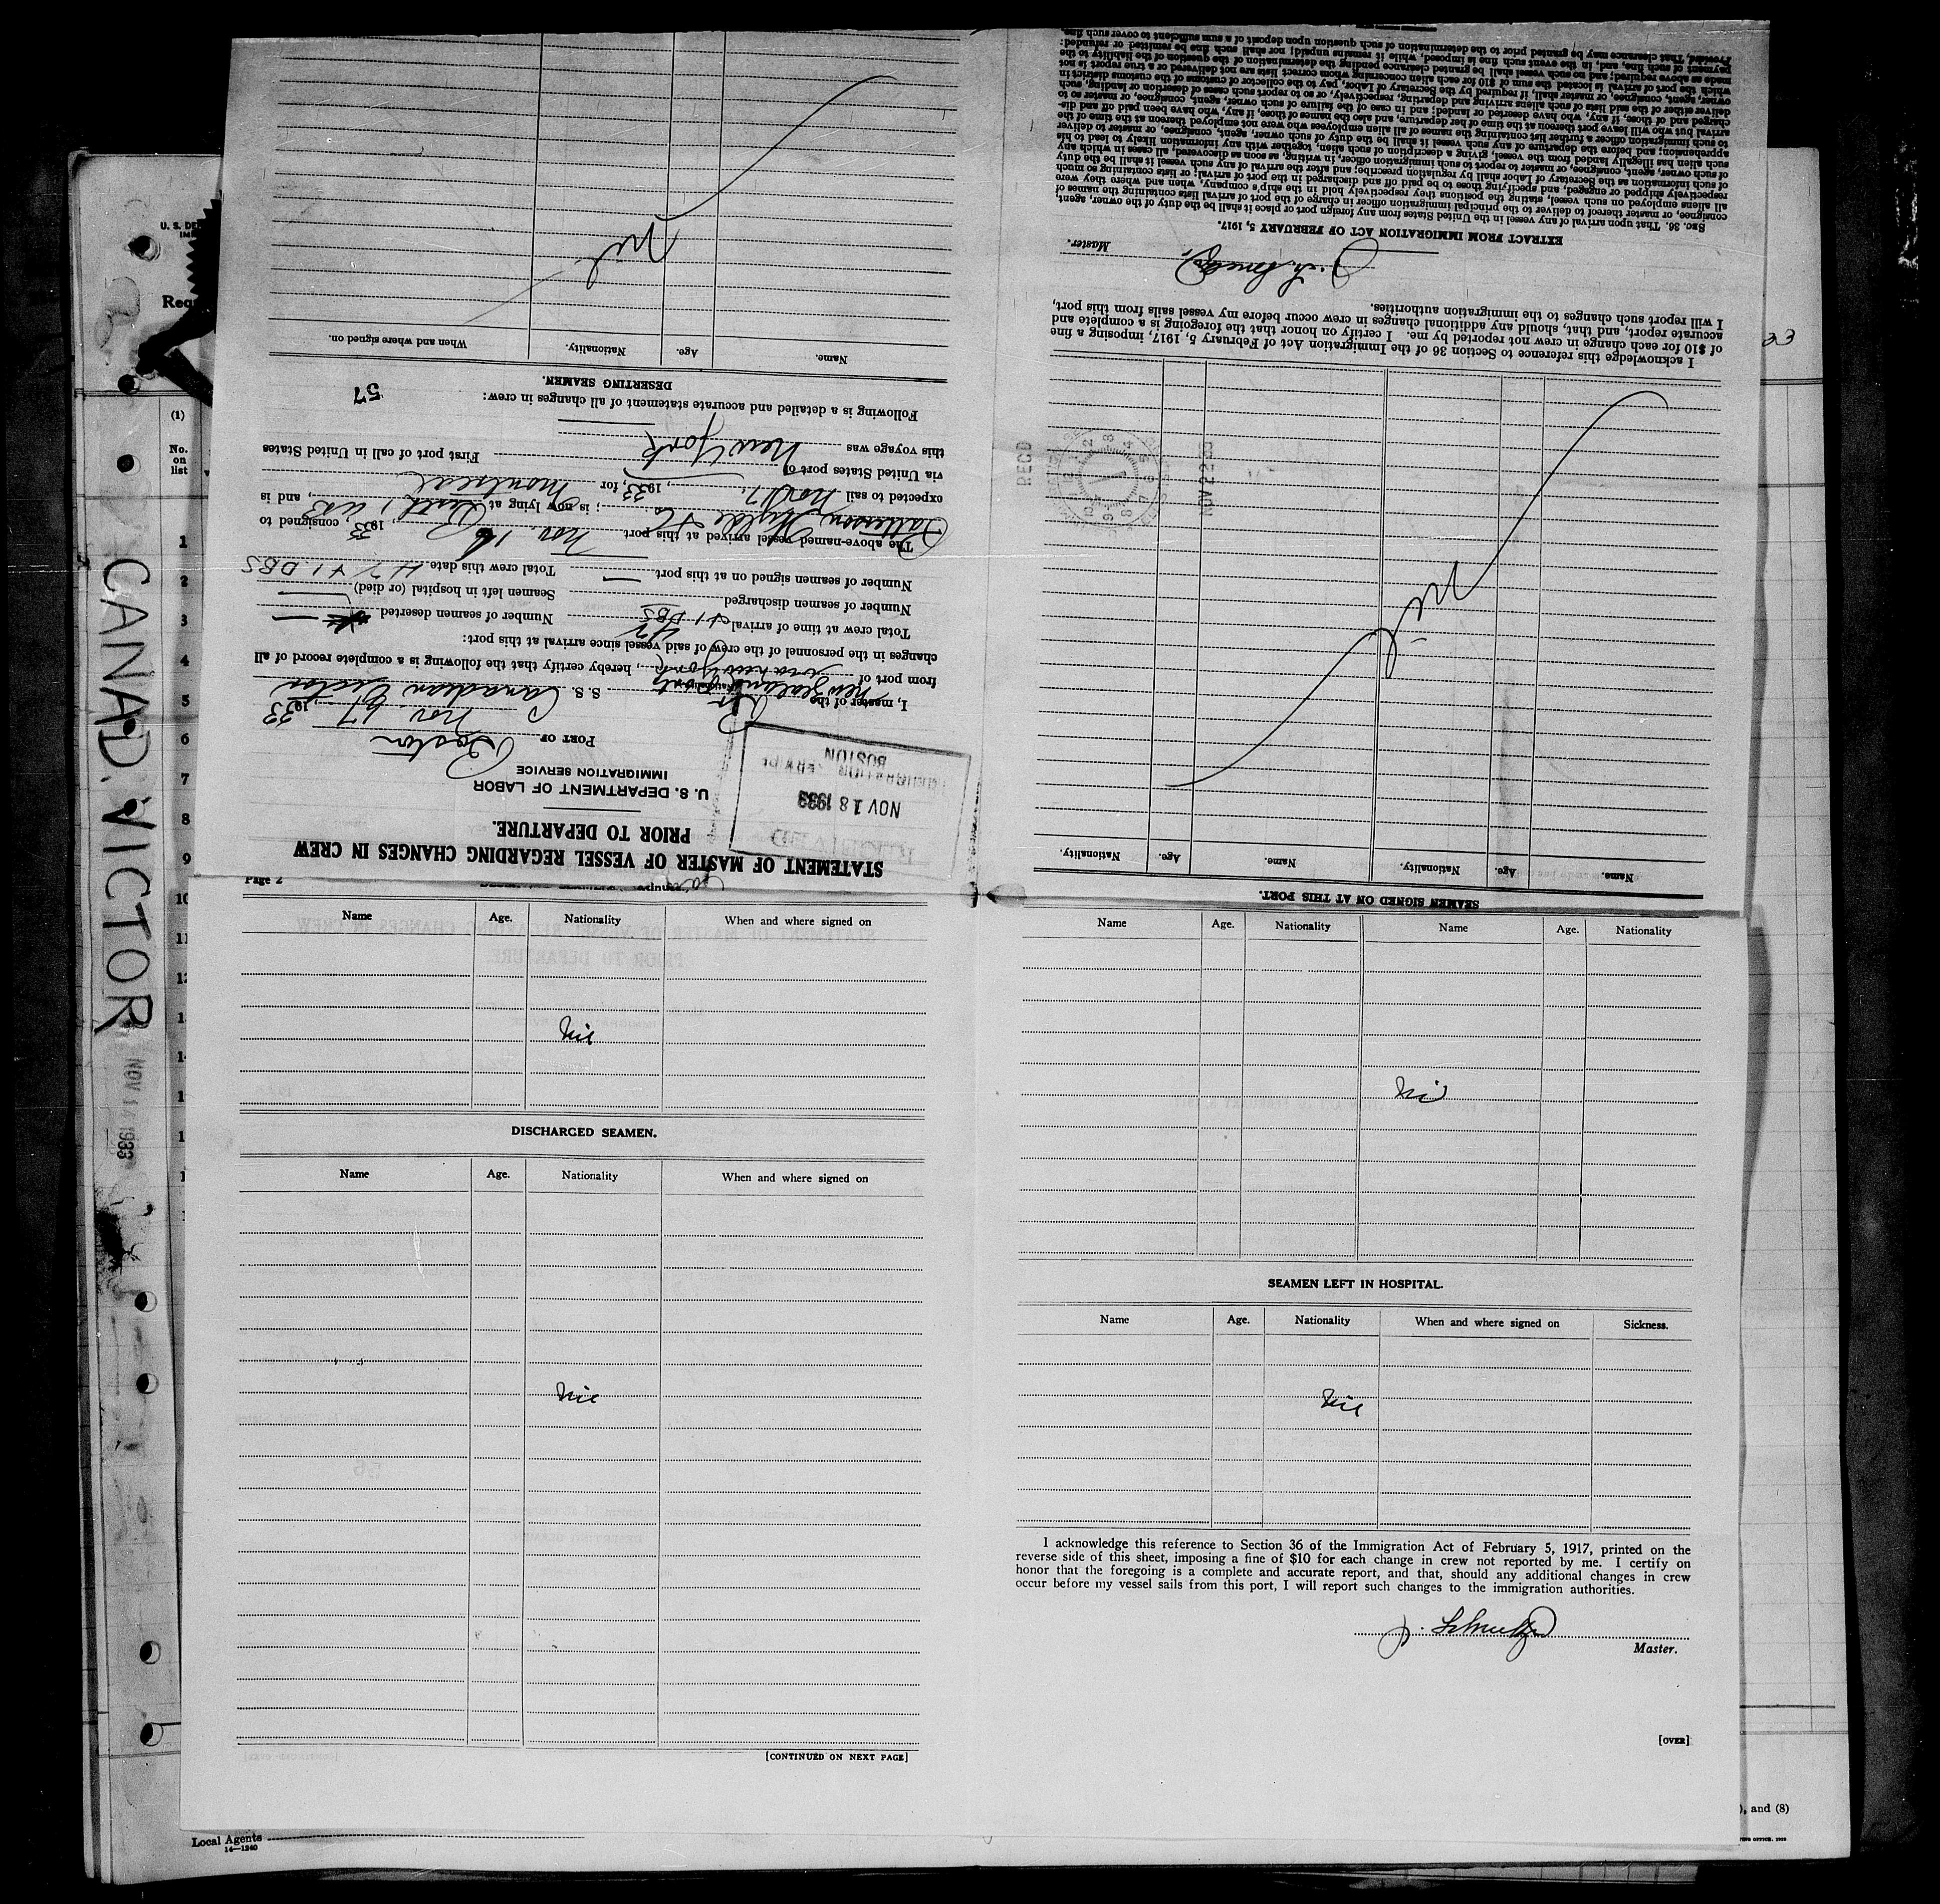 STATEMENT OF MASTER OF VESSEL REGARDING CHANGES IN CREW
PRIOR TO DEPARTURE.
U. S. DEPARTMENT OF LABOR
IMMIGRATION SERVICE
NOV 18 1933
BOSTON
PORT OF Boston
Nov. 17 1933
I, master of the S. S. Canadian Victor
from port of New Zealand Ports via New York, hereby certify that the following is a complete record of all
changes in the personnel of the crew of said vessel since arrival at this port:
Total crew at time of arrival 47 +1 DBS Number of seamen deserted —
Number of seamen discharged Seamen left in hospital (or died) —
Number of seamen signed on at this port — Total crew this date 47 +1 DBS
The above-named vessel arrived at this port Nov. 16, 1933, consigned to
Patterson Wylde & Co; is now lying at, and is
expected to sail Nov 17, 1933, for Montreal
via United States port of First port of call in United States
this voyage was New York
Following is a detailed and accurate statement of all changes in crew:
57
DESERTING SEAMEN.
Name. Age. Nationality. When and where signed on.
Nil
SEAMEN SIGNED ON AT THIS PORT.
Name. Age. Nationality. Name. Age. Nationality.
Nil
REC'D
NOV 22 33
I acknowledge this reference to Section 36 of the Immigration Act of February 5, 1917, imposing a fine
of $10 for each change in crew not reported by me. I certify on honor that the foregoing is a complete and
accurate report, and that, should any additional changes in crew occur before my vessel sails from this port,
I will report such changes to the immigration authorities.
Master.
EXTRACT FROM IMMIGRATION ACT OF FEBRUARY 5, 1917.
SEC. 36. That upon arrival of any vessel in the United States from any foreign port or place it shall be the duty of the owner, agent,
consignee, or master thereof to deliver to the principal immigration officer in charge of the port of arrival lists containing the names of
all aliens employed on such vessel, stating the positions they respectively hold in the ship's company, when and where they were
respectively shipped or engaged, and specifying those to be paid off and discharged in the port of arrival; or lists containing so much
of such information as the Secretary of Labor shall by regulation prescribe; and after the arrival of any such vessel it shall be the duty
of such owner, agent, consignee, or master to report to such immigration officer, in writing, as soon as discovered, all cases in which any
such alien has illegally landed from the vessel, giving a description of such alien, together with any information likely to lead to his
apprehension; and before the departure of any such vessel it shall be the duty of such owner, agent, consignee, or master to deliver
to such immigration officer a further list containing the names of all alien employees who were not employed thereon at the time of the
arrival but who will leave port thereon at the time of her departure, and also the names of those, if any, who have been paid off and dis-
charged and of those, if any, who have deserted or landed; and in case of the failure of such owner, agent, consignee, or master so to
deliver either of the said lists of such aliens arriving and departing, respectively, or so to report such cases of desertion or landing, such
owner, agent, consignee, or master shall, if required by the Secretary of Labor, pay to the collector of customs of the customs district in
which the port of arrival is located the sum of $10 for each alien concerning whom correct lists are not delivered or a true report is not
made as above required; and no such vessel shall be granted clearance pending the determination of the question of the liability to the
payment of such fine, and, in the event such fine is imposed, while it remains unpaid; nor shall such fine be remitted or refunded:
Provided, That clearance may be granted prior to the determination of such question upon deposit of a sum sufficient to cover such fine.
Page 2
Name Age. Nationality When and where signed on
Nil
DISCHARGED SEAMEN.
Name Age. Nationality When and where signed on
Nil
[CONTINUED ON NEXT PAGE]
Name Age. Nationality Name Age. Nationality
Nil
SEAMEN LEFT IN HOSPITAL.
Name Age. Nationality When and where signed on Sickness.
Nil
I acknowledge this reference to Section 36 of the Immigration Act of February 5, 1917, printed on the
reverse side of this sheet, imposing a fine of $10 for each change in crew not reported by me. I certify on
honor that the foregoing is a complete and accurate report, and that, should any additional changes in crew
occur before my vessel sails from this port, I will report such changes to the immigration authorities.
Master.
[OVER]
CANAD. VICTOR
NOV 1933
(1)
No.
on
list
1
2
3
4
5
6
7
8
9
10
11
Local Agents
14—1240
), and (8)
33